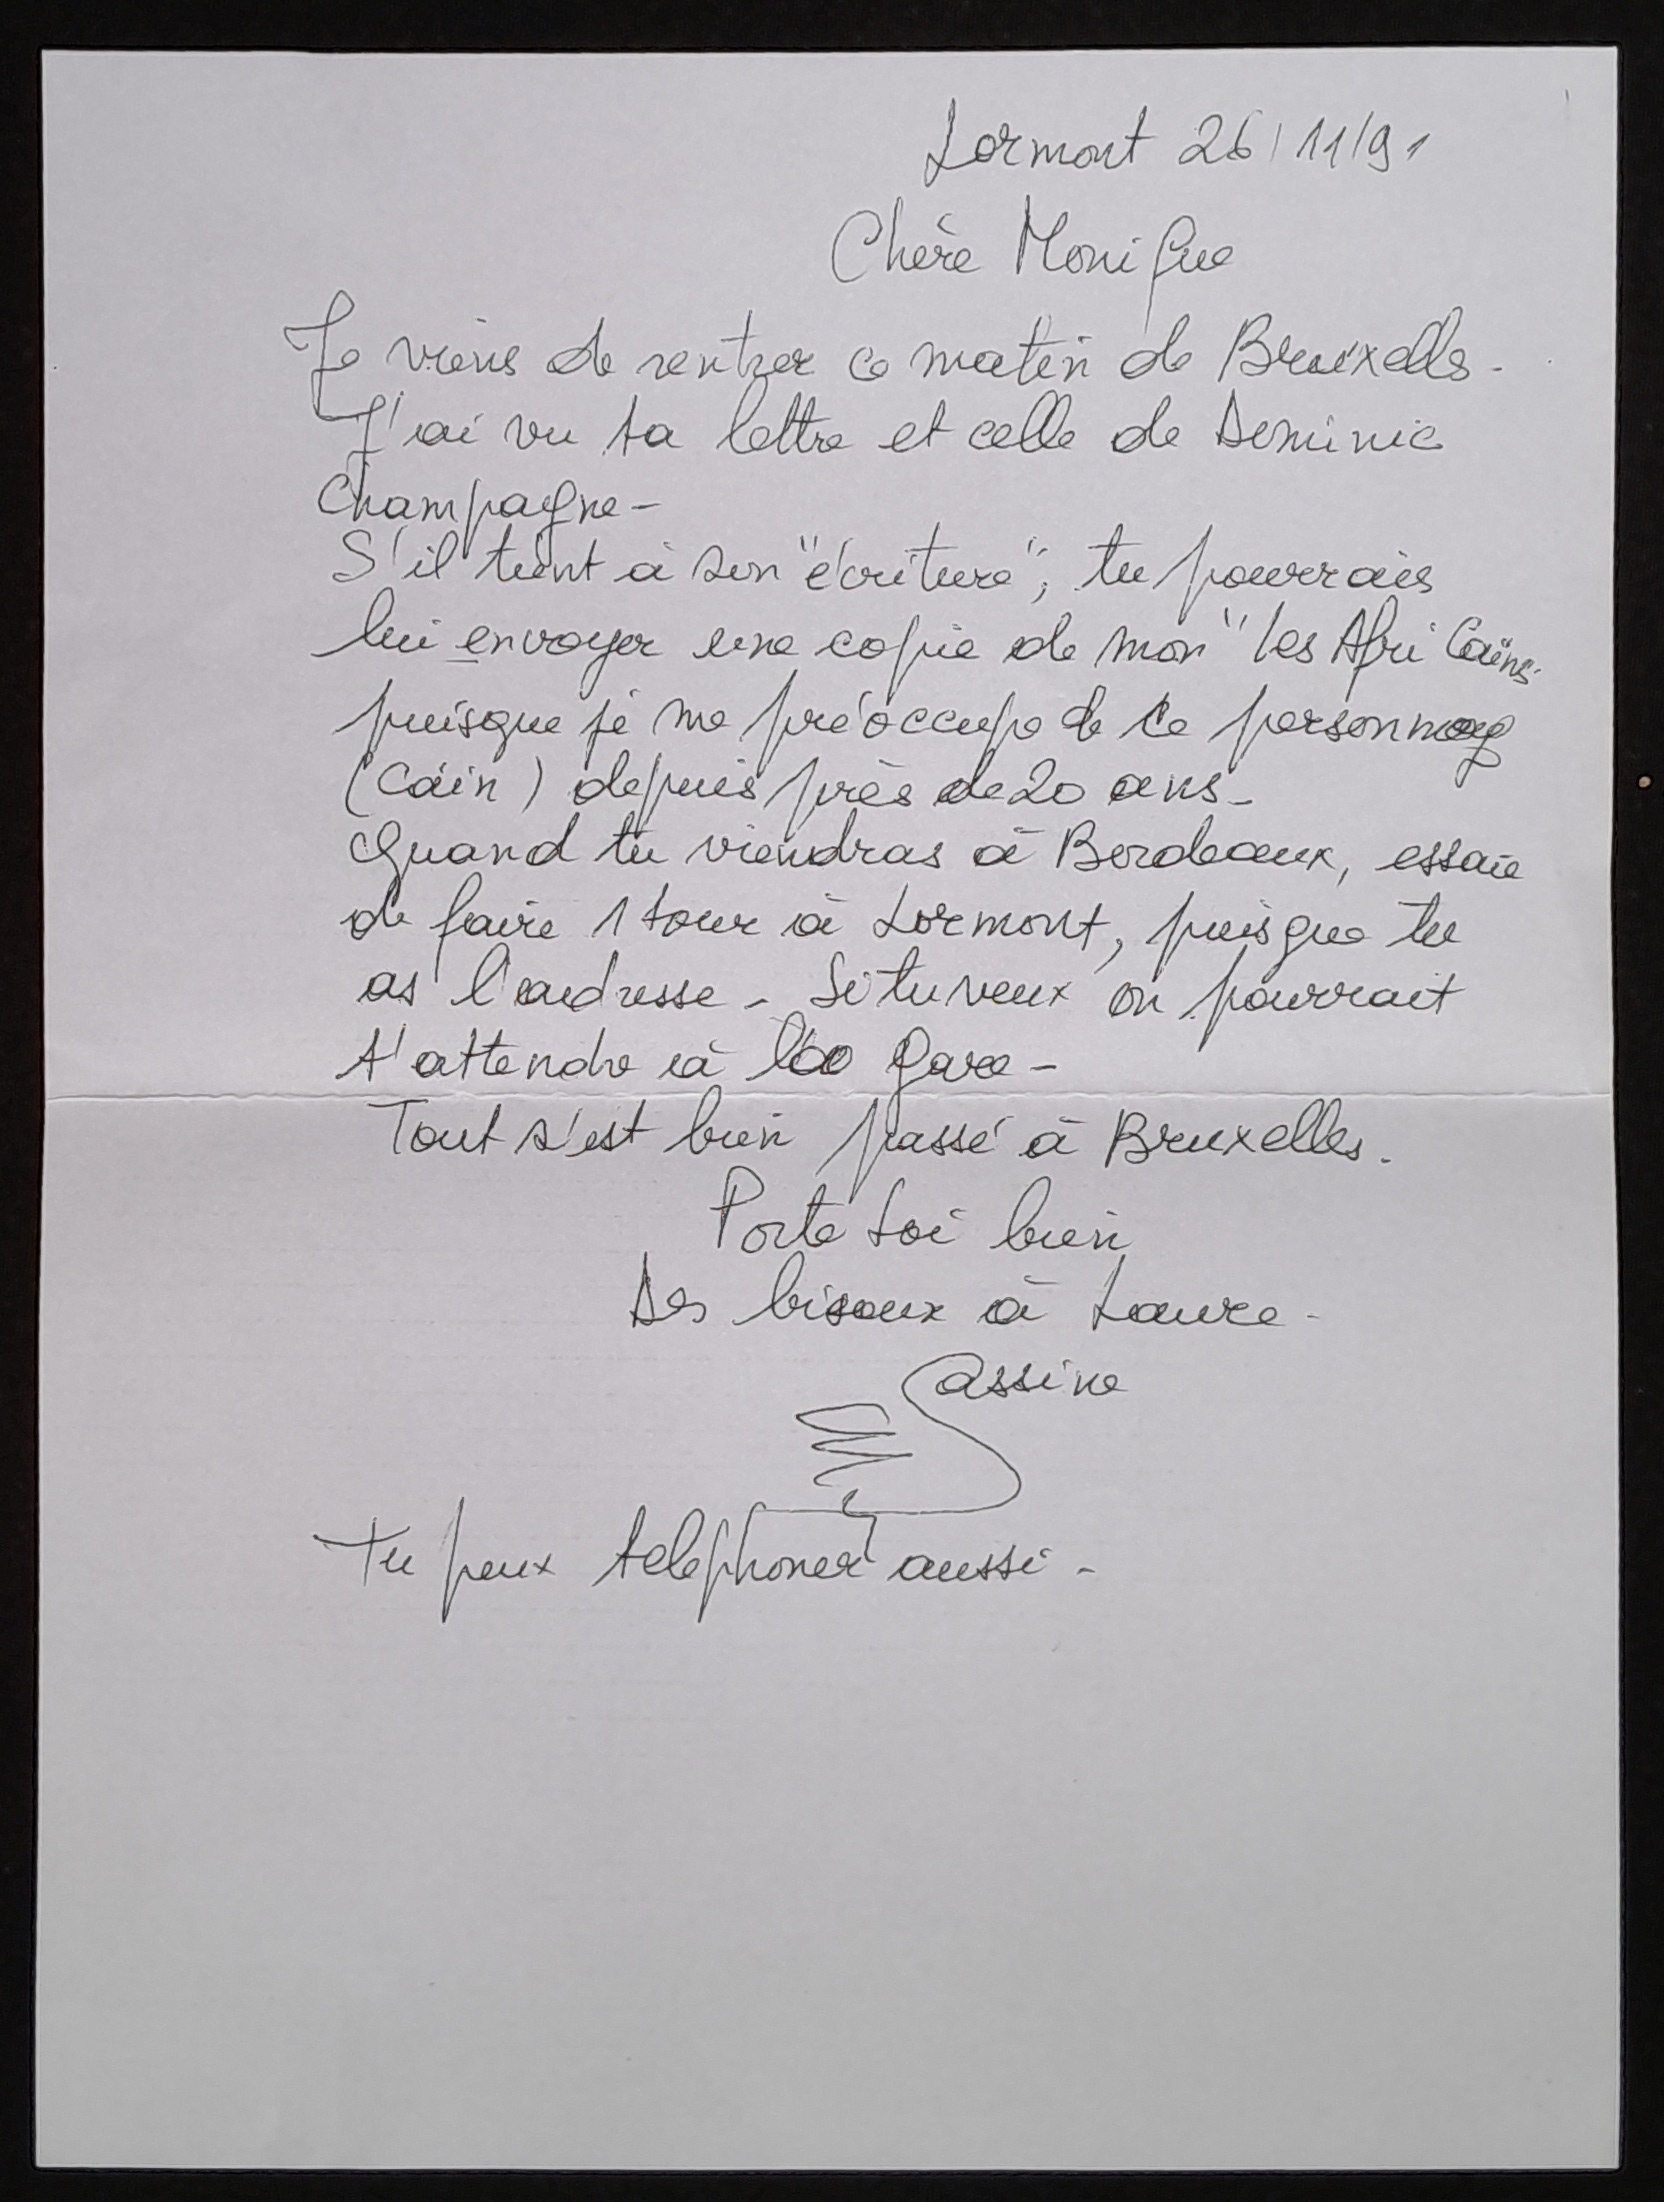 Lormont 26/11/91
Chère Monique
Je viens de rentrer ce matin de Bruxelles -
J'ai vu ta lettre et celle de Dominic
Champagne -
S'il tient à son "écriture", tu pourrais
lui envoyer une copie de mon "les Afri Caïns"
puisque je me préoccupe de ce personnage
(Caïn) depuis près de 20 ans -
Quand tu viendras à Bordeaux, essaie
de faire 1 tour à Lormont, puisque tu
as l'adresse - Si tu veux on pourrait
t'attendre à la gare -
Tout s'est bien passé à Bruxelles.
Porte toi bien
Des bisoux à Laure -
Tu peux telephoner aussi -